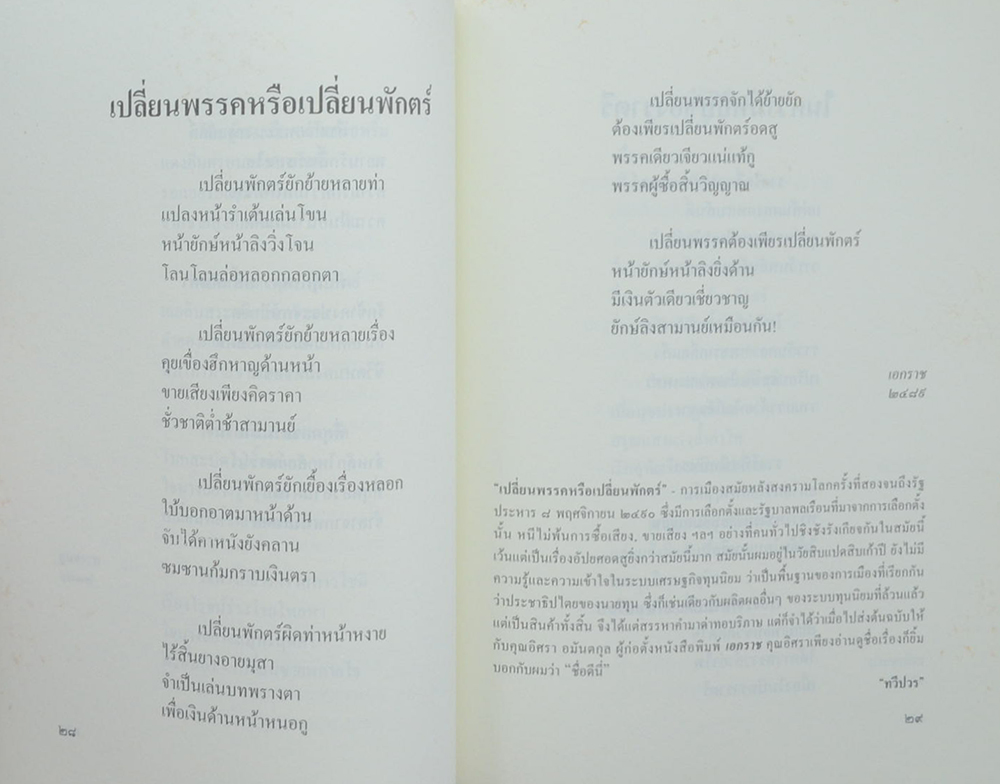 เปลี่ยนพรรคหรือเปลี่ยนพักตร์
เปลี่ยนพักตร์ยักย้ายหลายท่า
แปลงหน้ารำเต้นเล่นโขน
หน้ายักษ์หน้าลิงวิ่งโจน
โลนโลนล่อหลอกกลอกตา
เปลี่ยนพักตร์ยักย้ายหลายเรื่อง
คุยเขื่องฮึกหาญด้านหน้า
ขายเสียงเพียงคิดราคา
ชั่วชาติต่ำช้าสามานย์
เปลี่ยนพักตร์ยักเยื้องเรื่องหลอก
ใบ้บอกอาตมาหน้าด้าน
จับได้คาหนังยังคลาน
ซมซานก้มกราบเงินตรา
เปลี่ยนพักตร์ผิดท่าหน้าหงาย
ไร้สิ้นยางอายมุสา
จำเป็นเล่นบทพรางตา
เพื่อเงินด้านหน้าหนอกู
๒๘
เปลี่ยนพรรคจักได้ย้ายยัก
ต้องเพียรเปลี่ยนพักตร์อดสู
พรรคเดียวเจียวแน่แท้กู
พรรคผู้ซื้อสิ้นวิญญาณ
เปลี่ยนพรรคต้องเพียรเปลี่ยนพักตร์
หน้ายักษ์หน้าลิงยิ่งด้าน
มีเงินตัวเดียวเชี่ยวชาญ
ยักษ์ลิงสามานย์เหมือนกัน!
เอกราช
๒๔๘๙
"เปลี่ยนพรรคหรือเปลี่ยนพักตร์" - การเมืองสมัยหลังสงครามโลกครั้งที่สองจนถึงรัฐ
ประหาร ๘ พฤศจิกายน ๒๔๙๐ ซึ่งมีการเลือกตั้งและรัฐบาลพลเรือนที่มาจากการเลือกตั้ง
นั้น หนีไม่พ้นการซื้อเสียง, ขายเสียง ฯลฯ อย่างที่คนทั่วไปชิงชังรังเกียจกันในสมัยนี้
เว้นแต่เป็นเรื่องอัปยศอดสูยิ่งกว่าสมัยนี้มาก สมัยนั้นผมอยู่ในวัยสิบแปดสิบเก้าปี ยังไม่มี
ความรู้และความเข้าใจในระบบเศรษฐกิจทุนนิยม ว่าเป็นพื้นฐานของการเมืองที่เรียกกัน
ว่าประชาธิปไตยของนายทุน ซึ่งก็เช่นเดียวกับผลิตผลอื่นๆ ของระบบทุนนิยมที่ล้วนแล้ว
แต่เป็นสินค้าทั้งสิ้น จึงได้แต่สรรหาคำมาด่าทอบริภาษ แต่ก็จำได้ว่าเมื่อไปส่งต้นฉบับให้
กับคุณอิศรา อมันตกุล ผู้ก่อตั้งหนังสือพิมพ์ เอกราช คุณอิศราเพียงอ่านดูชื่อเรื่องก็ยิ้ม
บอกกับผมว่า "ชื่อดีนี่"
"ทวีปวร"
๒๙